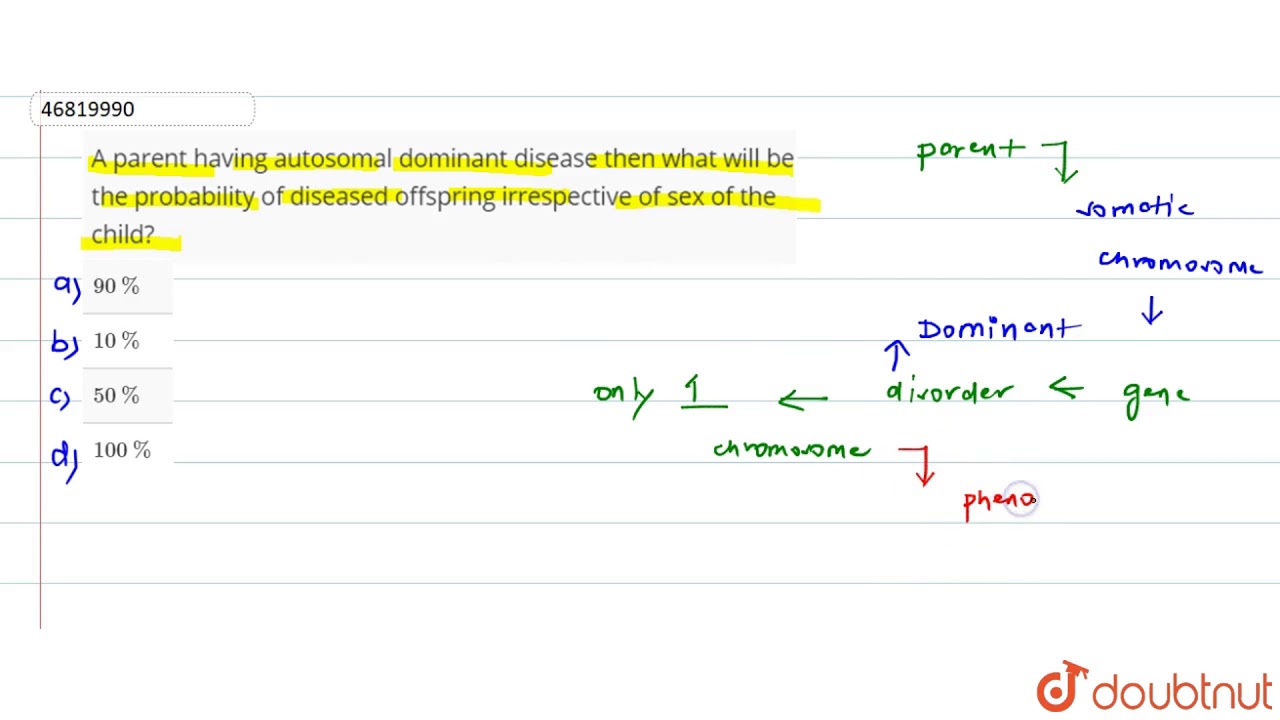 46819990
A parent having autosomal dominant disease then what will be
the probability of diseased offspring irrespective of sex of the
child?
a) 90 %
b) 10 %
c) 50 %
d) 100 %
parent
somatic
chromosome
Dominant
only 1 disorder gene
chromosome
pheno
doubtnut